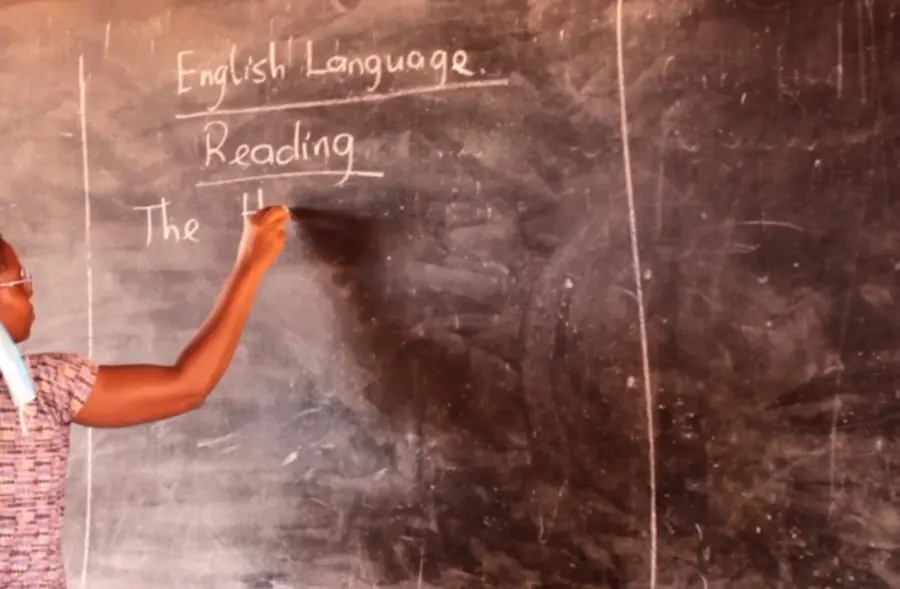 English Language.
Reading
The H